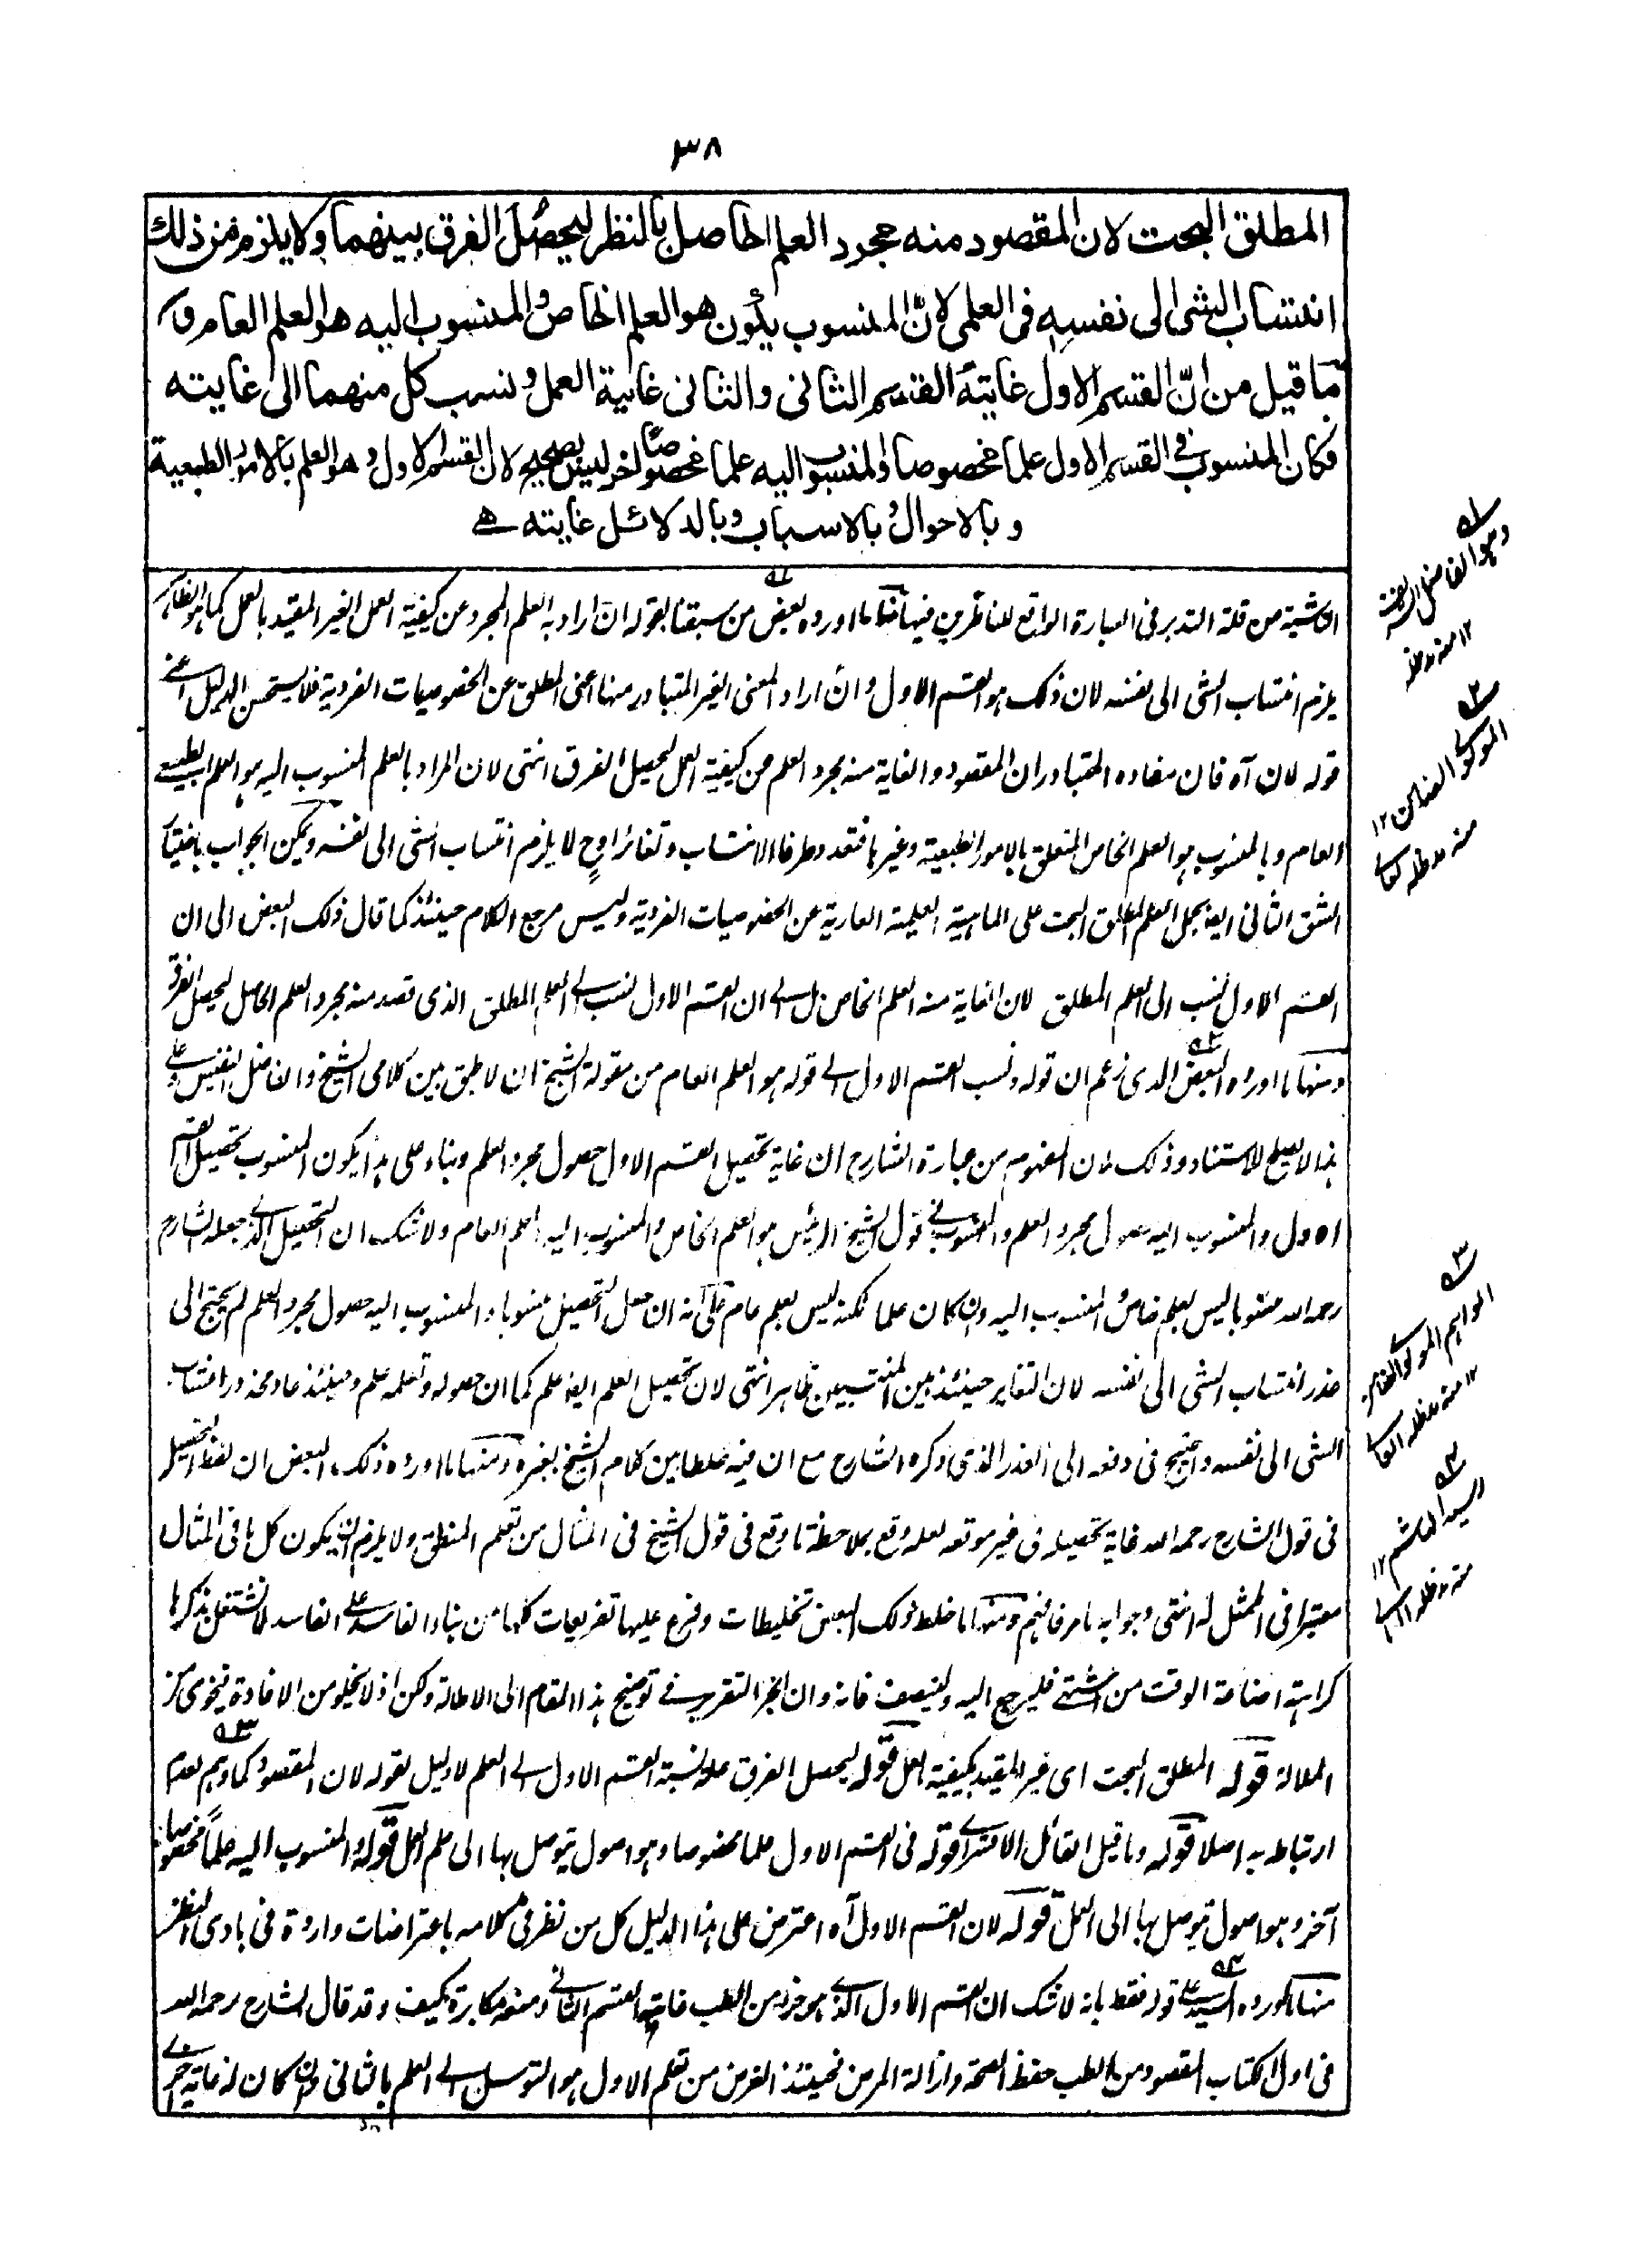 ٣٨
المطلق البحت لان المقصود منه مجرد العلم الحاصل بالنظر ليحصُل الفرق بينهما ولا يلزم من ذلك
انتساب الشئ الى نفسه فى العلمى لانّ المنسوب يكون هو العلم الخاص والمنسوب اليه هو العلم العام و
ما قيل من انّ القسم الاول غايته القسم الثانى والثانى غايته العمل ونسب كل منهما الى غايته
فكان المنسوب فى القسم الاول علما مخصوصا والمنسوب اليه علما مخصوصًا اخر ليس بصحيح لان القسم الاول وهو العلم بالامور الطبيعية
و بالاحوال و بالاسباب و بالدلائل غايته هے
من قلة التدبر فى العبارة الواقع للناظرين فيها ما اورده بعض من سبقنا بقوله ان اراد به العلم المجرد عن كيفية العمل الغير المقيد بالعمل كما هو الظاهر
يلزم انتساب الشئ الى نفسه لان ذلك هو القسم الاول وان اراد المعنى الغير المتبادر منها اعنى المطلق عن الخصوصيات الفردية فلا يستحسن الدليل اعنى
قوله لان آه فان مفاده المتبادر ان المقصود والغاية منه مجرد العلم من كيفية العمل ليحصل الفرق انتهى لان المراد بالعلم المنسوب اليه هو العلم الطبيعى
العام وبالمنسوب هو العلم الخاص المتعلق بالامور الطبيعية وغيرها فتعدد طرفا الانتساب وتغائرا وح لا يلزم انتساب الشئ الى نفسه ويمكن الجواب باختيار
الشق الثانى ايضا بحمل العلم المطلق البحت على الماهية العلمية العارية عن الخصوصيات الفردية وليس مرجع الكلام حينئذ كما قال ذلك البعض الى ان
القسم الاول نسب الى العلم المطلق لان الغاية منه العلم الخاص بل الى ان القسم الاول نسب الى العلم المطلق الذى قصد منه مجرد العلم الحاصل ليحصل الفرق
ومنها ما اورده البعض الذى زعم ان قوله ونسب القسم الاول الى قوله هو العلم العام من مقولة الشيخ ان لا طبق بين كلامى الشيخ والفاضل النفيس وعلى
هذا لا يصلح للاستناد وذلك لان المفهوم من عبارة الشارح ان غاية تحصيل القسم الاول حصول مجرد العلم وبناء على هذا يكون المنسوب تحصيل القسم
الاول والمنسوب اليه حصول مجرد العلم والمنسوب فى قول الشيخ الرئيس هو العلم الخاص والمنسوب اليه العلم العام ولا شك ان التحصيل الذى جعله الشارح
رحمه الله منسوبا ليس بعلم خاص والمنسوب اليه وان كان علما لكنه ليس بعلم عام على انه ان جعل التحصيل منسوبا والمنسوب اليه حصول مجرد العلم لم يحتج الى
عذر انتساب الشئ الى نفسه لان التغاير حينئذ بين المنتسبين ظاهر انتهى لان تحصيل العلم ايضا علم كما ان حصوله وتعلمه علم وحينئذ عاد محذور انتساب
الشئ الى نفسه واحتيج فى دفعه الى العذر الذى ذكره الشارح مع ان فيه خلطا بين كلام الشيخ بغيره ومنها ما اورده ذلك البعض ان لفظ التحصيل
فى قول الشارح رحمه الله غاية تحصيله فى غير موقعه لعله وقع بملاحظة ما وقع فى قول الشيخ فى المثال من تعلم المنطق ولا يلزم ان يكون كل ما فى المثال
معتبرا فى الممثل له انتهى وجوابه ما مر فافهم ومنها ما خلط ذلك البعض تخليطات وفرع عليها تفريعات كلها من بناء الفاسد على الفاسد لا نشتغل بذكرها
كراهية اضاعة الوقت من اشتهى فليرجع اليه ولينصف فانه وان انجر التقرير فى توضيح هذا المقام الى الاطالة ولكن اذ لا يخلو من الافادة
الملالة قوله المطلق البحت اى غير المقيد بكيفية العمل قوله ليحصل الفرق علة نسبة القسم الاول الى العلم لا دليل لقوله لان المقصود كما وهم لعدم
ارتباطه به اصلا قوله وما قيل القائل الاقسرائى قوله فى القسم الاول علما مخصوصا وهو اصول يتوصل بها الى علم العمل قوله والمنسوب اليه علماً مخصوصا
آخر وهو اصول يتوصل بها الى العمل قوله لان القسم الاول آه اعترض على هذا الدليل كل من نظر فى كلامه باعتراضات واردة فى بادى النظر
منها ما اورده السيد على قوله فقط بانه لا شك ان القسم الاول الذى هو جزء من الطب غايته القسم الثانى ومنعه مكابرة كيف وقد قال الشارح رحمه الله
فى اول الكتاب المقصود من الطب حفظ الصحة وازالة المرض فحينئذ الغرض من تعلم الاول هو التوسل الى العلم بالثانى وان كان له غاية اخرى
١٢ منه مد ظله
منه مد ظله
السيد الهاشم ١٢
منه مد ظله